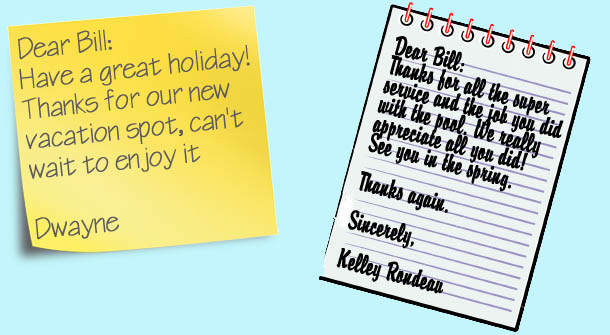 Dear Bill:
Have a great holiday!
Thanks for our new
vacation spot, can't
wait to enjoy it
Dwayne
Dear Bill:
Thanks for all the super
service and the job you did
with the pool. We really
appreciate all you did!
See you in the spring.
Thanks again.
Sincerely,
Kelley Rondeau